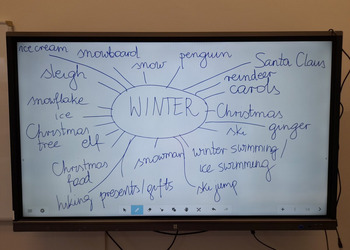 ice cream
snowboard
snow
penguin
Santa Claus
sleigh
reindeer
carols
snowflake
ice
WINTER
Christmas
Christmas
tree
elf
ski
ginger
winter swimming
Christmas
food
snowman
ice swimming
hiking
presents/gifts
ski jump